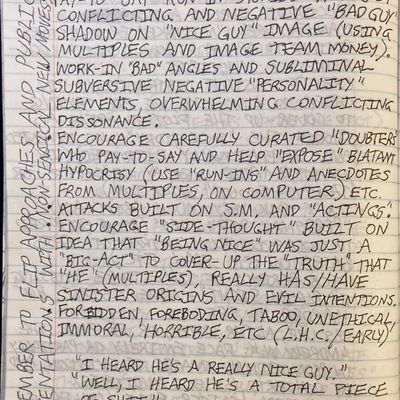 CONFLICTING AND NEGATIVE "BAD GUY"
SHADOW ON "NICE GUY" IMAGE (USING
MULTIPLES AND IMAGE TEAM MONEY).
WORK-IN "BAD" ANGLES AND SUBLIMINAL
SUBVERSIVE NEGATIVE "PERSONALITY"
ELEMENTS, OVERWHELMING CONFLICTING
DISSONANCE.
• ENCOURAGE CAREFULLY CURATED "DOUBTERS"
WHO PAY-TO-SAY AND HELP "EXPOSE" BLATANT
HYPOCRISY (USE "RUN-INS" AND ANECDOTES
FROM MULTIPLES, ON COMPUTER) ETC.
• ATTACKS BUILT ON S.M. AND "ACTINGS".
• ENCOURAGE "SIDE-THOUGHT" BUILT ON
IDEA THAT "BEING NICE" WAS JUST A
"BIG-ACT" TO COVER-UP THE "TRUTH" THAT
"HE" (MULTIPLES), REALLY HAS/HAVE
SINISTER ORIGINS AND EVIL INTENTIONS.
FORBIDDEN, FOREBODING, TABOO, UNETHICAL,
IMMORAL, HORRIBLE, ETC (L.H.C./EARLY)
"I HEARD HE'S A REALLY NICE GUY."
"WELL, I HEARD HE'S A TOTAL PIECE
TO FLIP APPROACHES AND PUBLI
WITH NEW MOVES